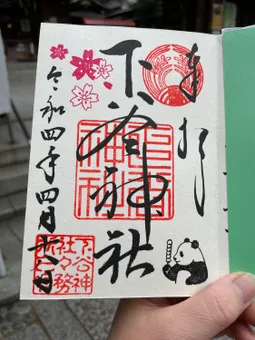 奉拝
下谷神社
下谷神社
令和四年四月廿八日
下谷神
社々務
所印